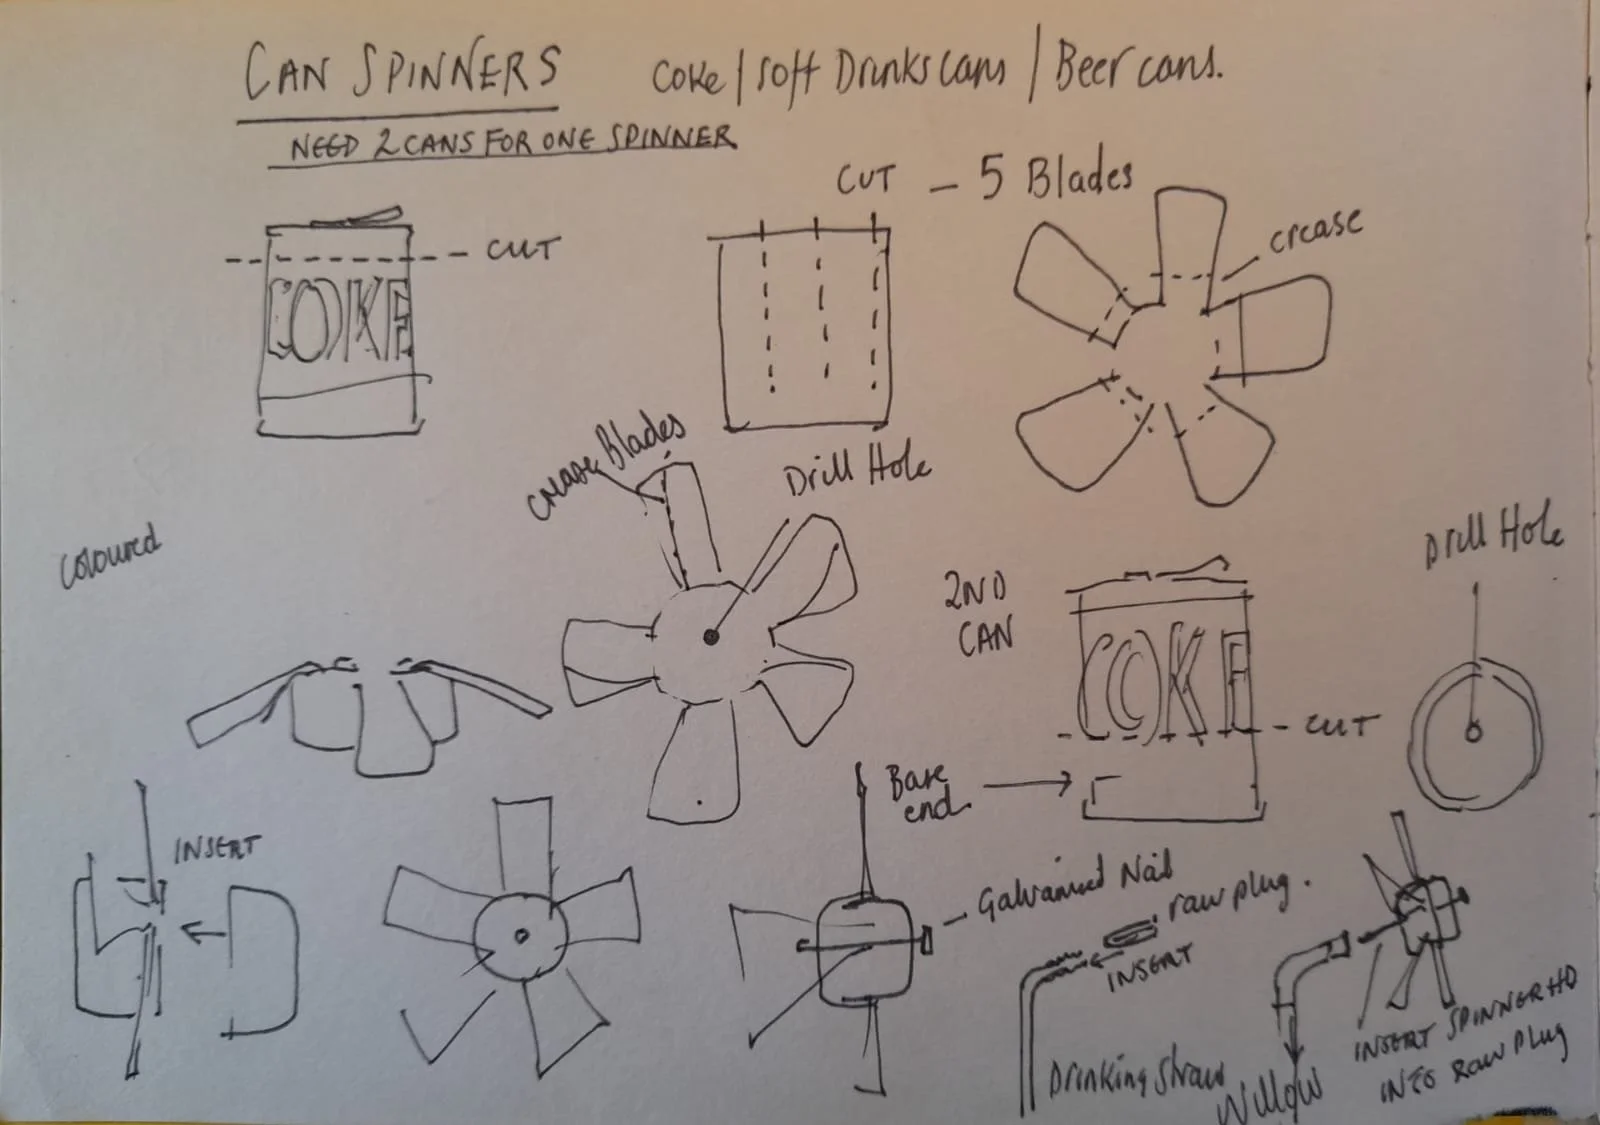 CAN SPINNERS
Coke / Soft Drinks cans / Beer cans.
NEED 2 CANS FOR ONE SPINNER
CUT
COKE
CUT – 5 Blades
crease
crease Blades
Drill Hole
Coloured
2ND
CAN
COKE
CUT
Drill Hole
Base
end
INSERT
Galvanised Nail
raw plug.
INSERT
Drinking Straw
Willow
INSERT SPINNER HD
INTO RAW PLUG